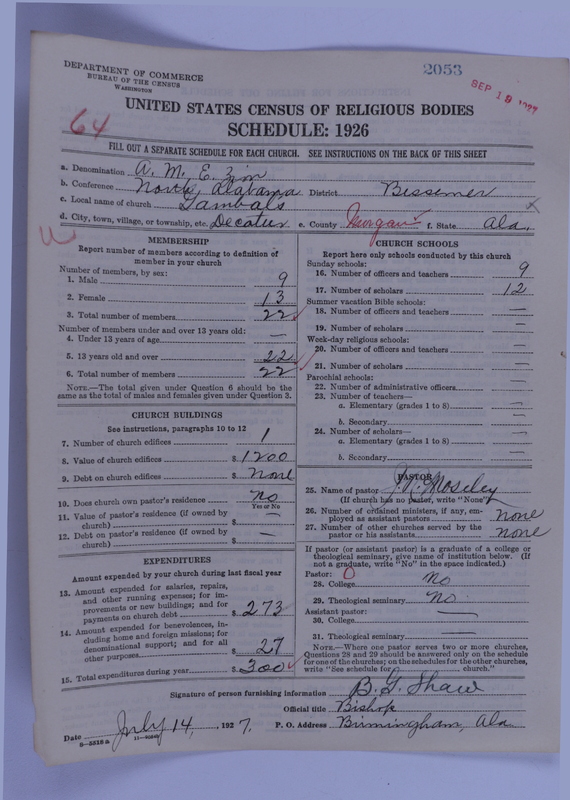 DEPARTMENT OF COMMERCE
BUREAU OF THE CENSUS
WASHINGTON
2053
SEP 19 1927
UNITED STATES CENSUS OF RELIGIOUS BODIES
64
SCHEDULE: 1926
FILL OUT A SEPARATE SCHEDULE FOR EACH CHURCH. SEE INSTRUCTIONS ON THE BACK OF THIS SHEET
a. Denomination A. M. E. Zion
b. Conference North Alabama District Bessemer
c. Local name of church Gambals
d. City, town, village, or township, etc. Decatur e. County Morgan f. State Ala.
MEMBERSHIP
Report number of members according to definition of
member in your church
Number of members, by sex:
1. Male 9
2. Female 13
3. Total number of members 22
Number of members under and over 13 years old:
4. Under 13 years of age —
5. 13 years old and over 22
6. Total number of members 22
NOTE.—The total given under Question 6 should be
the same as the total of males and females given under Question 3.
CHURCH BUILDINGS
See instructions, paragraphs 10 to 12
7. Number of church edifices 1
8. Value of church edifices $ 1200
9. Debt on church edifices $ none
10. Does church own pastor's residence No
Yes or No
11. Value of pastor's residence (if owned by
church) $ —
12. Debt on pastor's residence (if owned by
church) $ —
EXPENDITURES
Amount expended by your church during last fiscal year
13. Amount expended for salaries, repairs,
and other running expenses; for im-
provements or new buildings; and for
payments on church debt $ 273
14. Amount expended for benevolences, in-
cluding home and foreign missions; for
denominational support; and for all
other purposes $ 27
15. Total expenditures during year $ 300
CHURCH SCHOOLS
Report here only schools conducted by this church
Sunday schools:
16. Number of officers and teachers 9
17. Number of scholars 12
Summer vacation Bible schools:
18. Number of officers and teachers —
19. Number of scholars —
Week-day religious schools:
20. Number of officers and teachers —
21. Number of scholars —
Parochial schools:
22. Number of administrative officers —
23. Number of teachers—
a. Elementary (grades 1 to 8) —
b. Secondary —
24. Number of scholars—
a. Elementary (grades 1 to 8) —
b. Secondary —
PASTOR
25. Name of pastor Moseley
(If church has no pastor, write "None")
26. Number of ordained ministers, if any, em-
ployed as assistant pastors none
27. Number of other churches served by the
pastor or his assistants none
If pastor (or assistant pastor) is a graduate of a college or
theological seminary, give name of institution below. (If
not a graduate, write "No" in the space indicated.)
Pastor: 0
28. College No
29. Theological seminary No
Assistant pastor: —
30. College
31. Theological seminary —
NOTE.—Where one pastor serves two or more churches,
Questions 28 and 29 should be answered only on the schedule
for one of the churches; on the schedules for the other churches,
write "See schedule for church."
Signature of person furnishing information B. G. Shaw
Official title Bishop
Date July 14, 1927. P. O. Address Birmingham, Ala.